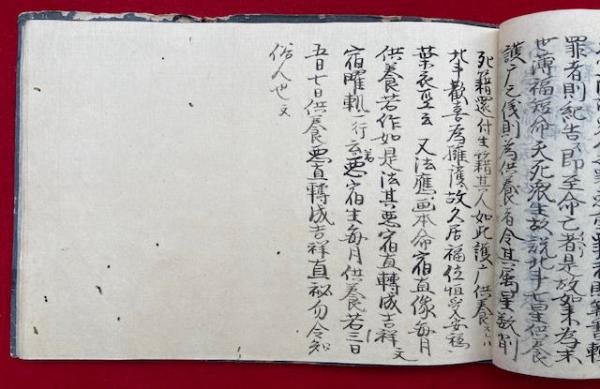 罪者則紀告即至命乙者是故如来為末
世薄福短命夭死故説北斗七星供養
護广之儀則為供養者令其属星数削
死籍還付生籍其人如此護广供養
北斗歓喜為擁護故久居福位恒受安穏
葉衣云 又法應画本命宿直像毎月
供養若作如是法其悪宿直轉成吉祥 文
宿曜軌一行云若悪宿生毎月供養若三日
五日七日供養悪直轉成吉祥直秘勿令知
俗人也 文